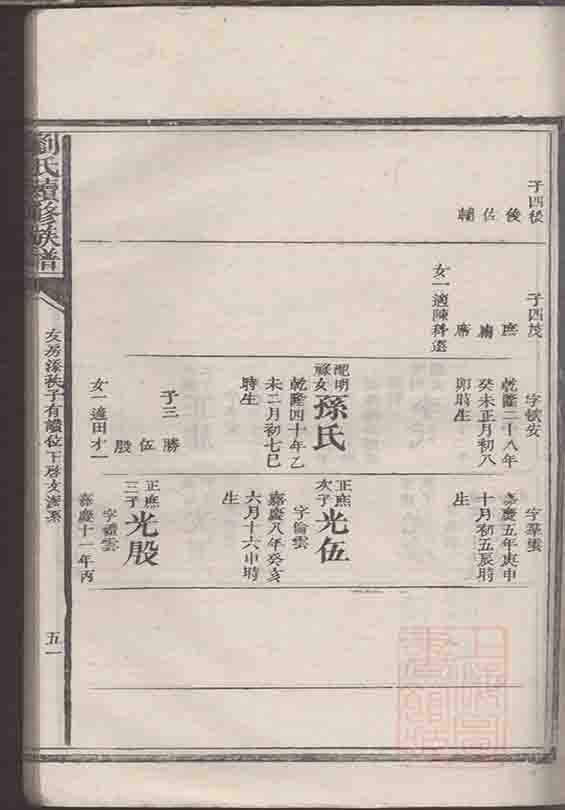 子四後
後佐輔
子四茂
庶 廟 席
女一適陳科選
字敏安
乾隆二十八年
癸未正月初八
卯時生
配明
祿女
孫氏
乾隆四十年乙
未二月初七巳
時生
子三 勝 伍 殷
女一適田才一
字華雲
嘉慶五年庚申
十月初五辰時
生
正庶
次子
光伍
字倫雲
嘉慶八年癸亥
六月十六申時
生
正庶
三子
光殷
字禮雲
嘉慶十一年丙
劉氏續修族譜
友房添秩子有讚位下啓文派系
五一
上海圖書館藏